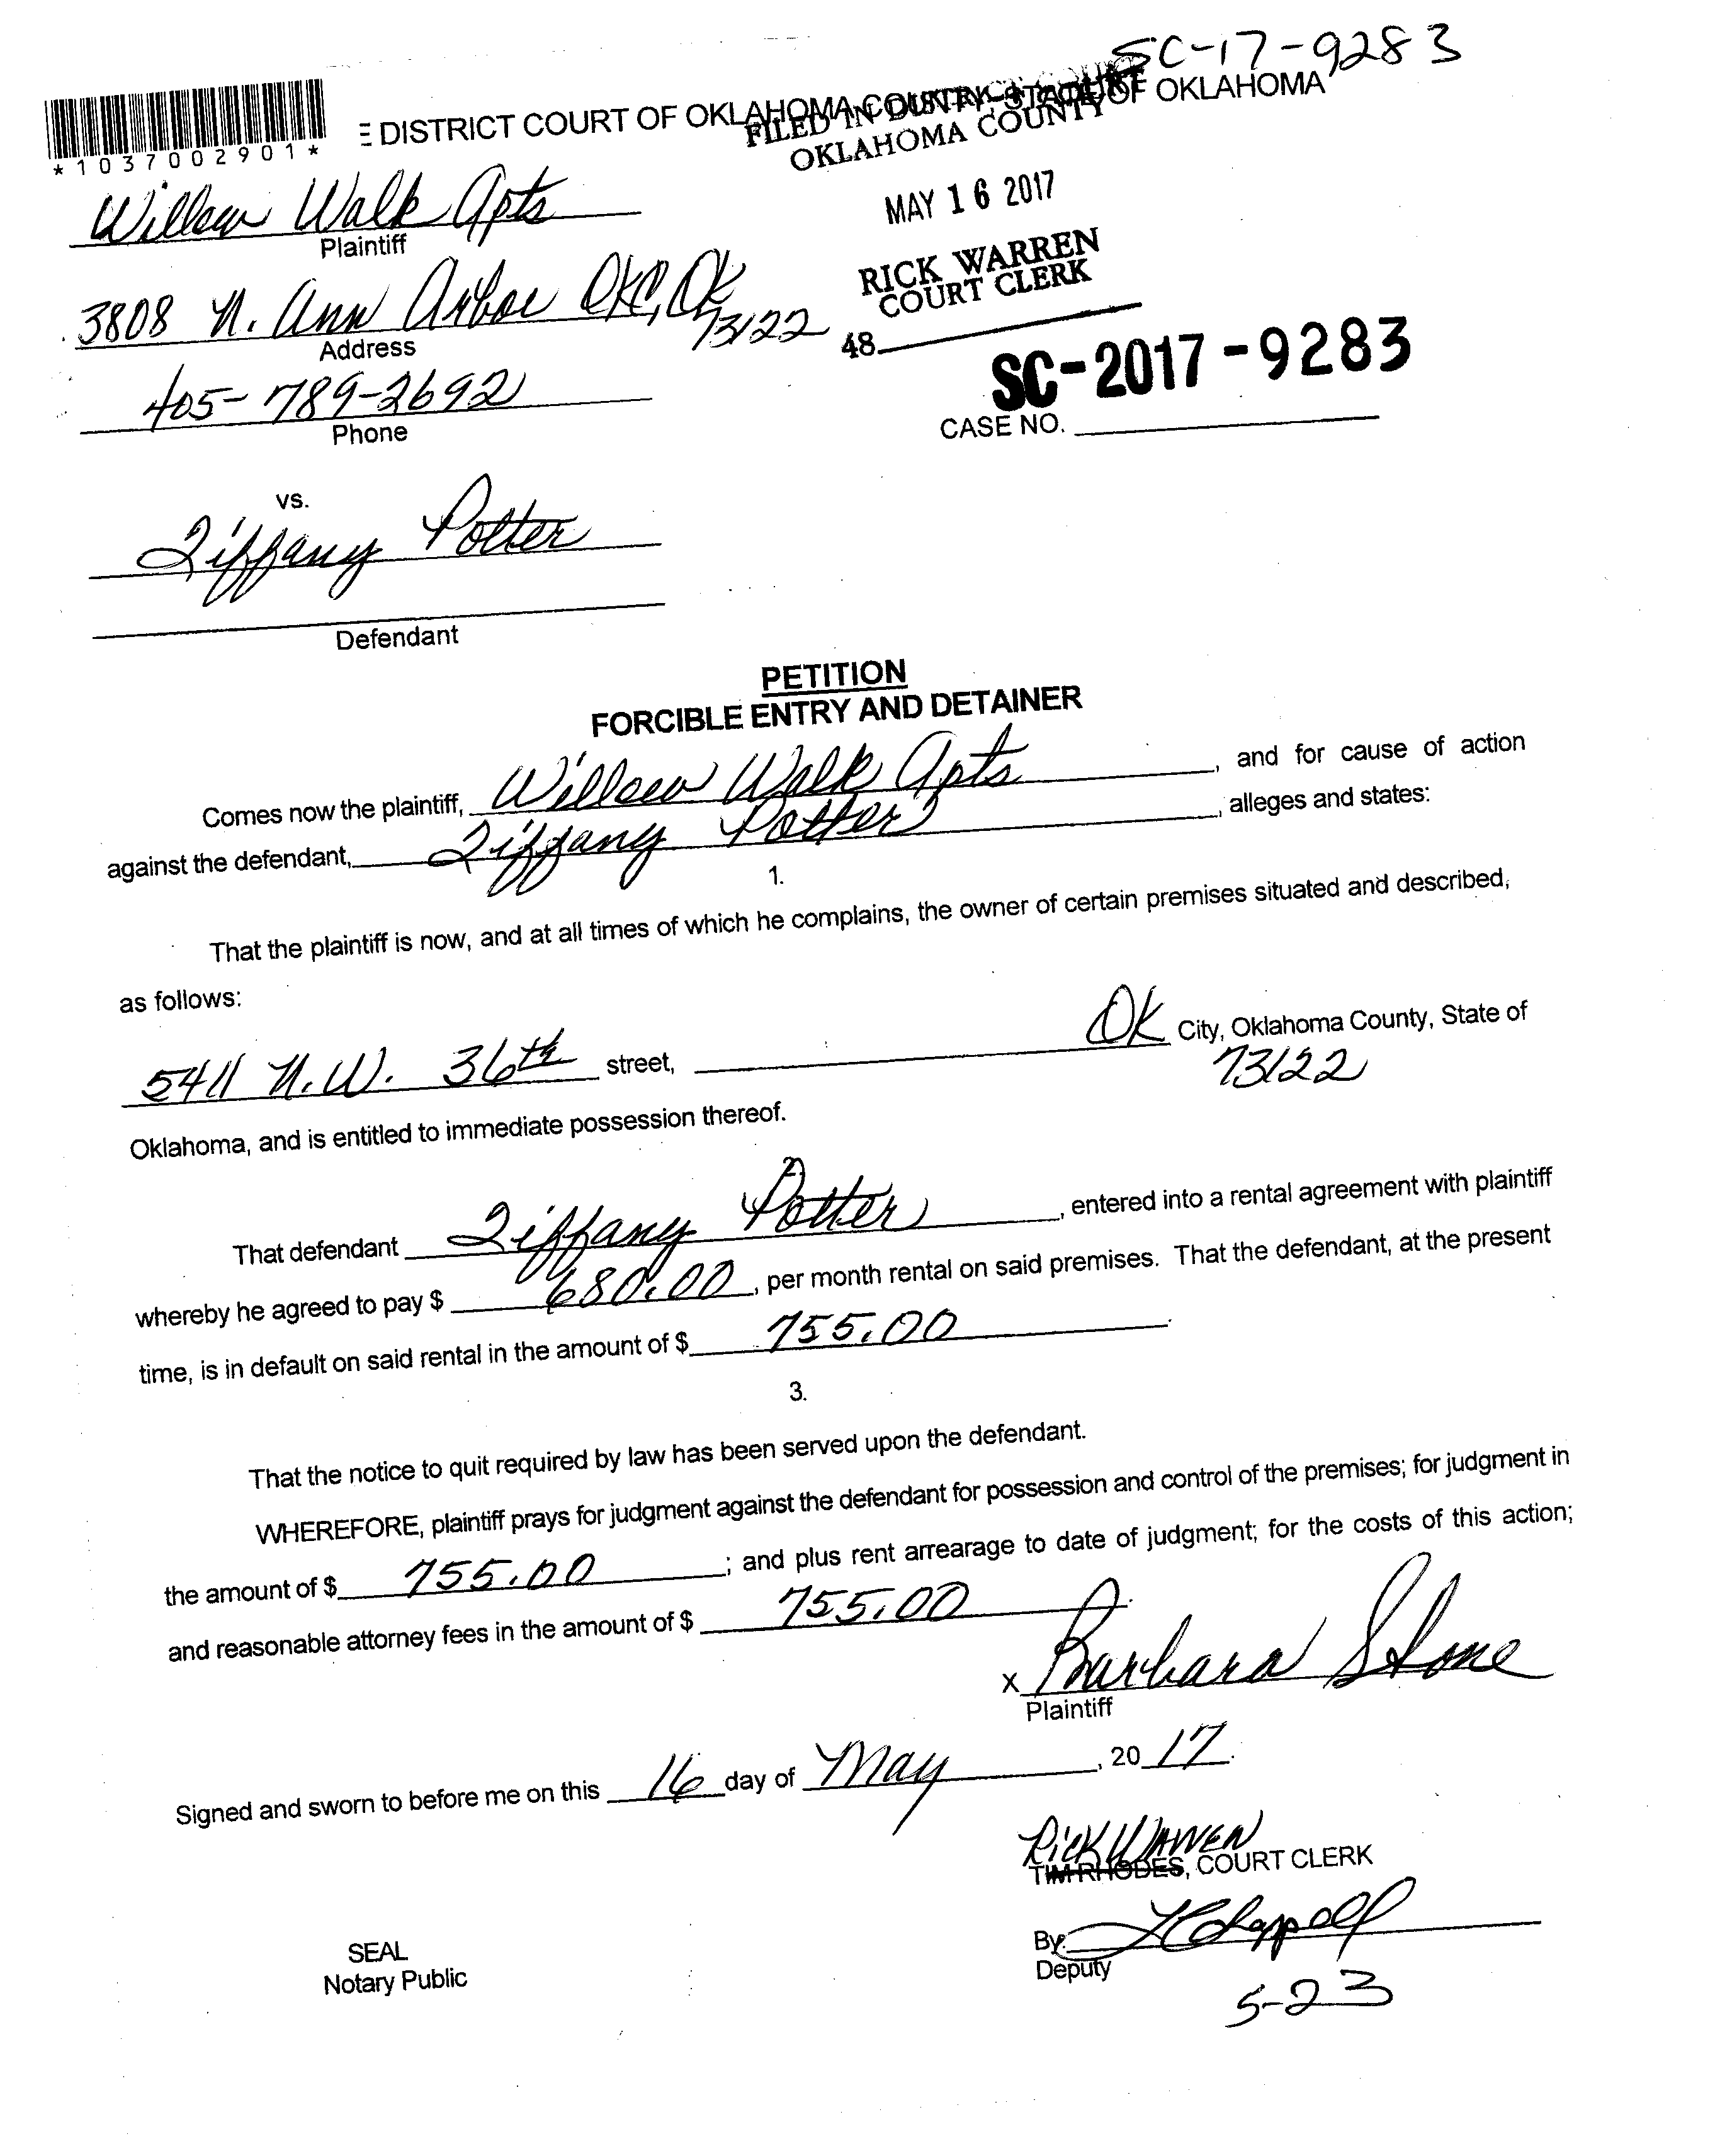 SC-17-9283
DISTRICT COURT OF OKLAHOMA COUNTY, STATE OF OKLAHOMA
FILED IN DISTRICT COURT
OKLAHOMA COUNTY
*1037002901*
MAY 16 2017
Willow Walk Apts
Plaintiff
RICK WARREN
COURT CLERK
3808 N. Ann Arbor OKC, Ok
73122
Address
48
SC-2017-9283
405-789-2692
CASE NO.
Phone
vs.
Tiffany Potter
Defendant
PETITION
FORCIBLE ENTRY AND DETAINER
Comes now the plaintiff, Willow Walk Apts, and for cause of action
against the defendant, Tiffany Potter, alleges and states:
1.
That the plaintiff is now, and at all times of which he complains, the owner of certain premises situated and described,
as follows:
5411 N.W. 36th street, OK City, Oklahoma County, State of
73122
Oklahoma, and is entitled to immediate possession thereof.
2.
That defendant Tiffany Potter, entered into a rental agreement with plaintiff
whereby he agreed to pay $ 680.00, per month rental on said premises. That the defendant, at the present
time, is in default on said rental in the amount of $ 755.00.
3.
That the notice to quit required by law has been served upon the defendant.
WHEREFORE, plaintiff prays for judgment against the defendant for possession and control of the premises; for judgment in
the amount of $ 755.00; and plus rent arrearage to date of judgment; for the costs of this action;
and reasonable attorney fees in the amount of $ 755.00.
x Barbara Stone
Plaintiff
Signed and sworn to before me on this 16 day of May, 2017.
Rick Warren
TIM RHODES, COURT CLERK
By: Chappell
Deputy
SEAL
Notary Public
5-23